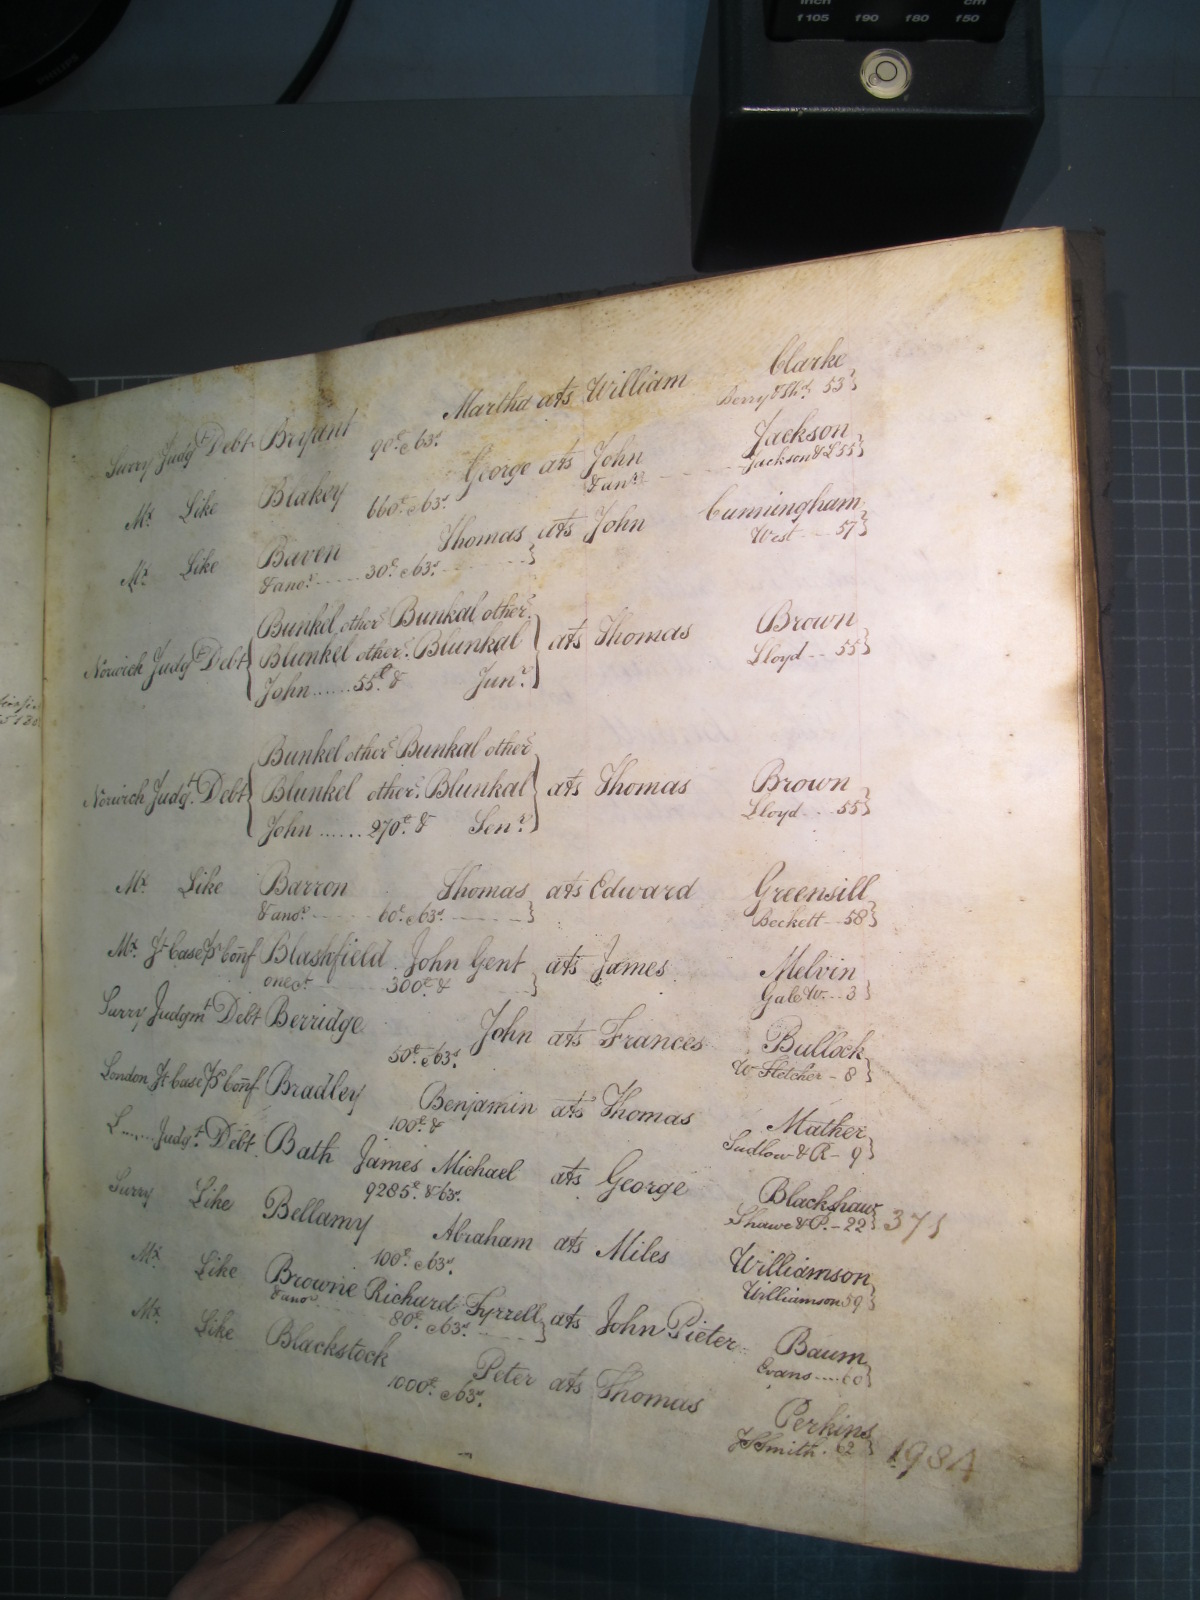 inch cm
f105 f90 f80 f50
Surry Judgt Debt Bryant Martha ats William Clarke
90£ & 63s. Berry & Sh. 53}
Mx. Like Blakey George ats John Jackson
660£ & 63s. & anr. Jackson & L 55}
Mx. Like Baven Thomas ats John Cunningham
& anor. 30£ & 63s. West 57}
Bunkel, other Bunkal, other
Norwich Judgt Debt Blunkel other. Blunkal ats Thomas Brown
John ...... 55£. & Junr. Lloyd 55}
Bunkel other Bunkal other
Norwich Judgt. Debt Blunkel other. Blunkal ats Thomas Brown
John ...... 270£. & Senr. Lloyd 55}
Mx. Like Barron Thomas ats Edward Greensill
& anor. 60£. & 63s. Beckett 58}
Mx. Conf Blashfield John Gent ats James Melvin
one &c. 300£ & Gale W. 3}
Surry Judgmt Debt Berridge John ats Frances Bullock
50£. & 63s. W Fletcher 8}
London Conf Bradley Benjamin ats Thomas Mather
100£. & Sudlow & R 9}
L..... Judgt. Debt. Bath James Michael ats George Blackshaw
9285£. & 63s. Shawe & P. 22} 371
Surry Like Bellamy Abraham ats Miles Williamson
100£. & 63s. Williamson 59}
Mx. Like Browne Richard Tyrrell ats John Pieter Baum
& anor 80£. & 63s. Evans 60}
Mx. Like Blackstock Peter ats Thomas Perkins
1000£. & 63s. Smith. 62} 1984